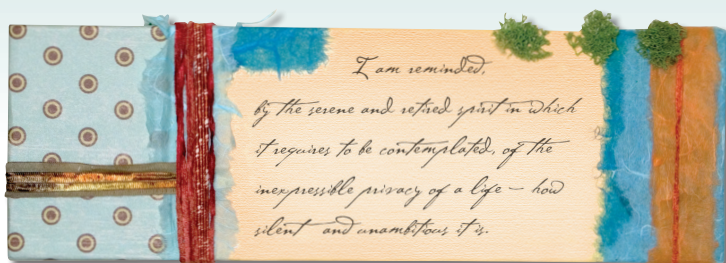 I am reminded,
by the serene and retired spirit in which
it requires to be contemplated, of the
inexpressible privacy of a life – how
silent and unambitious it is.